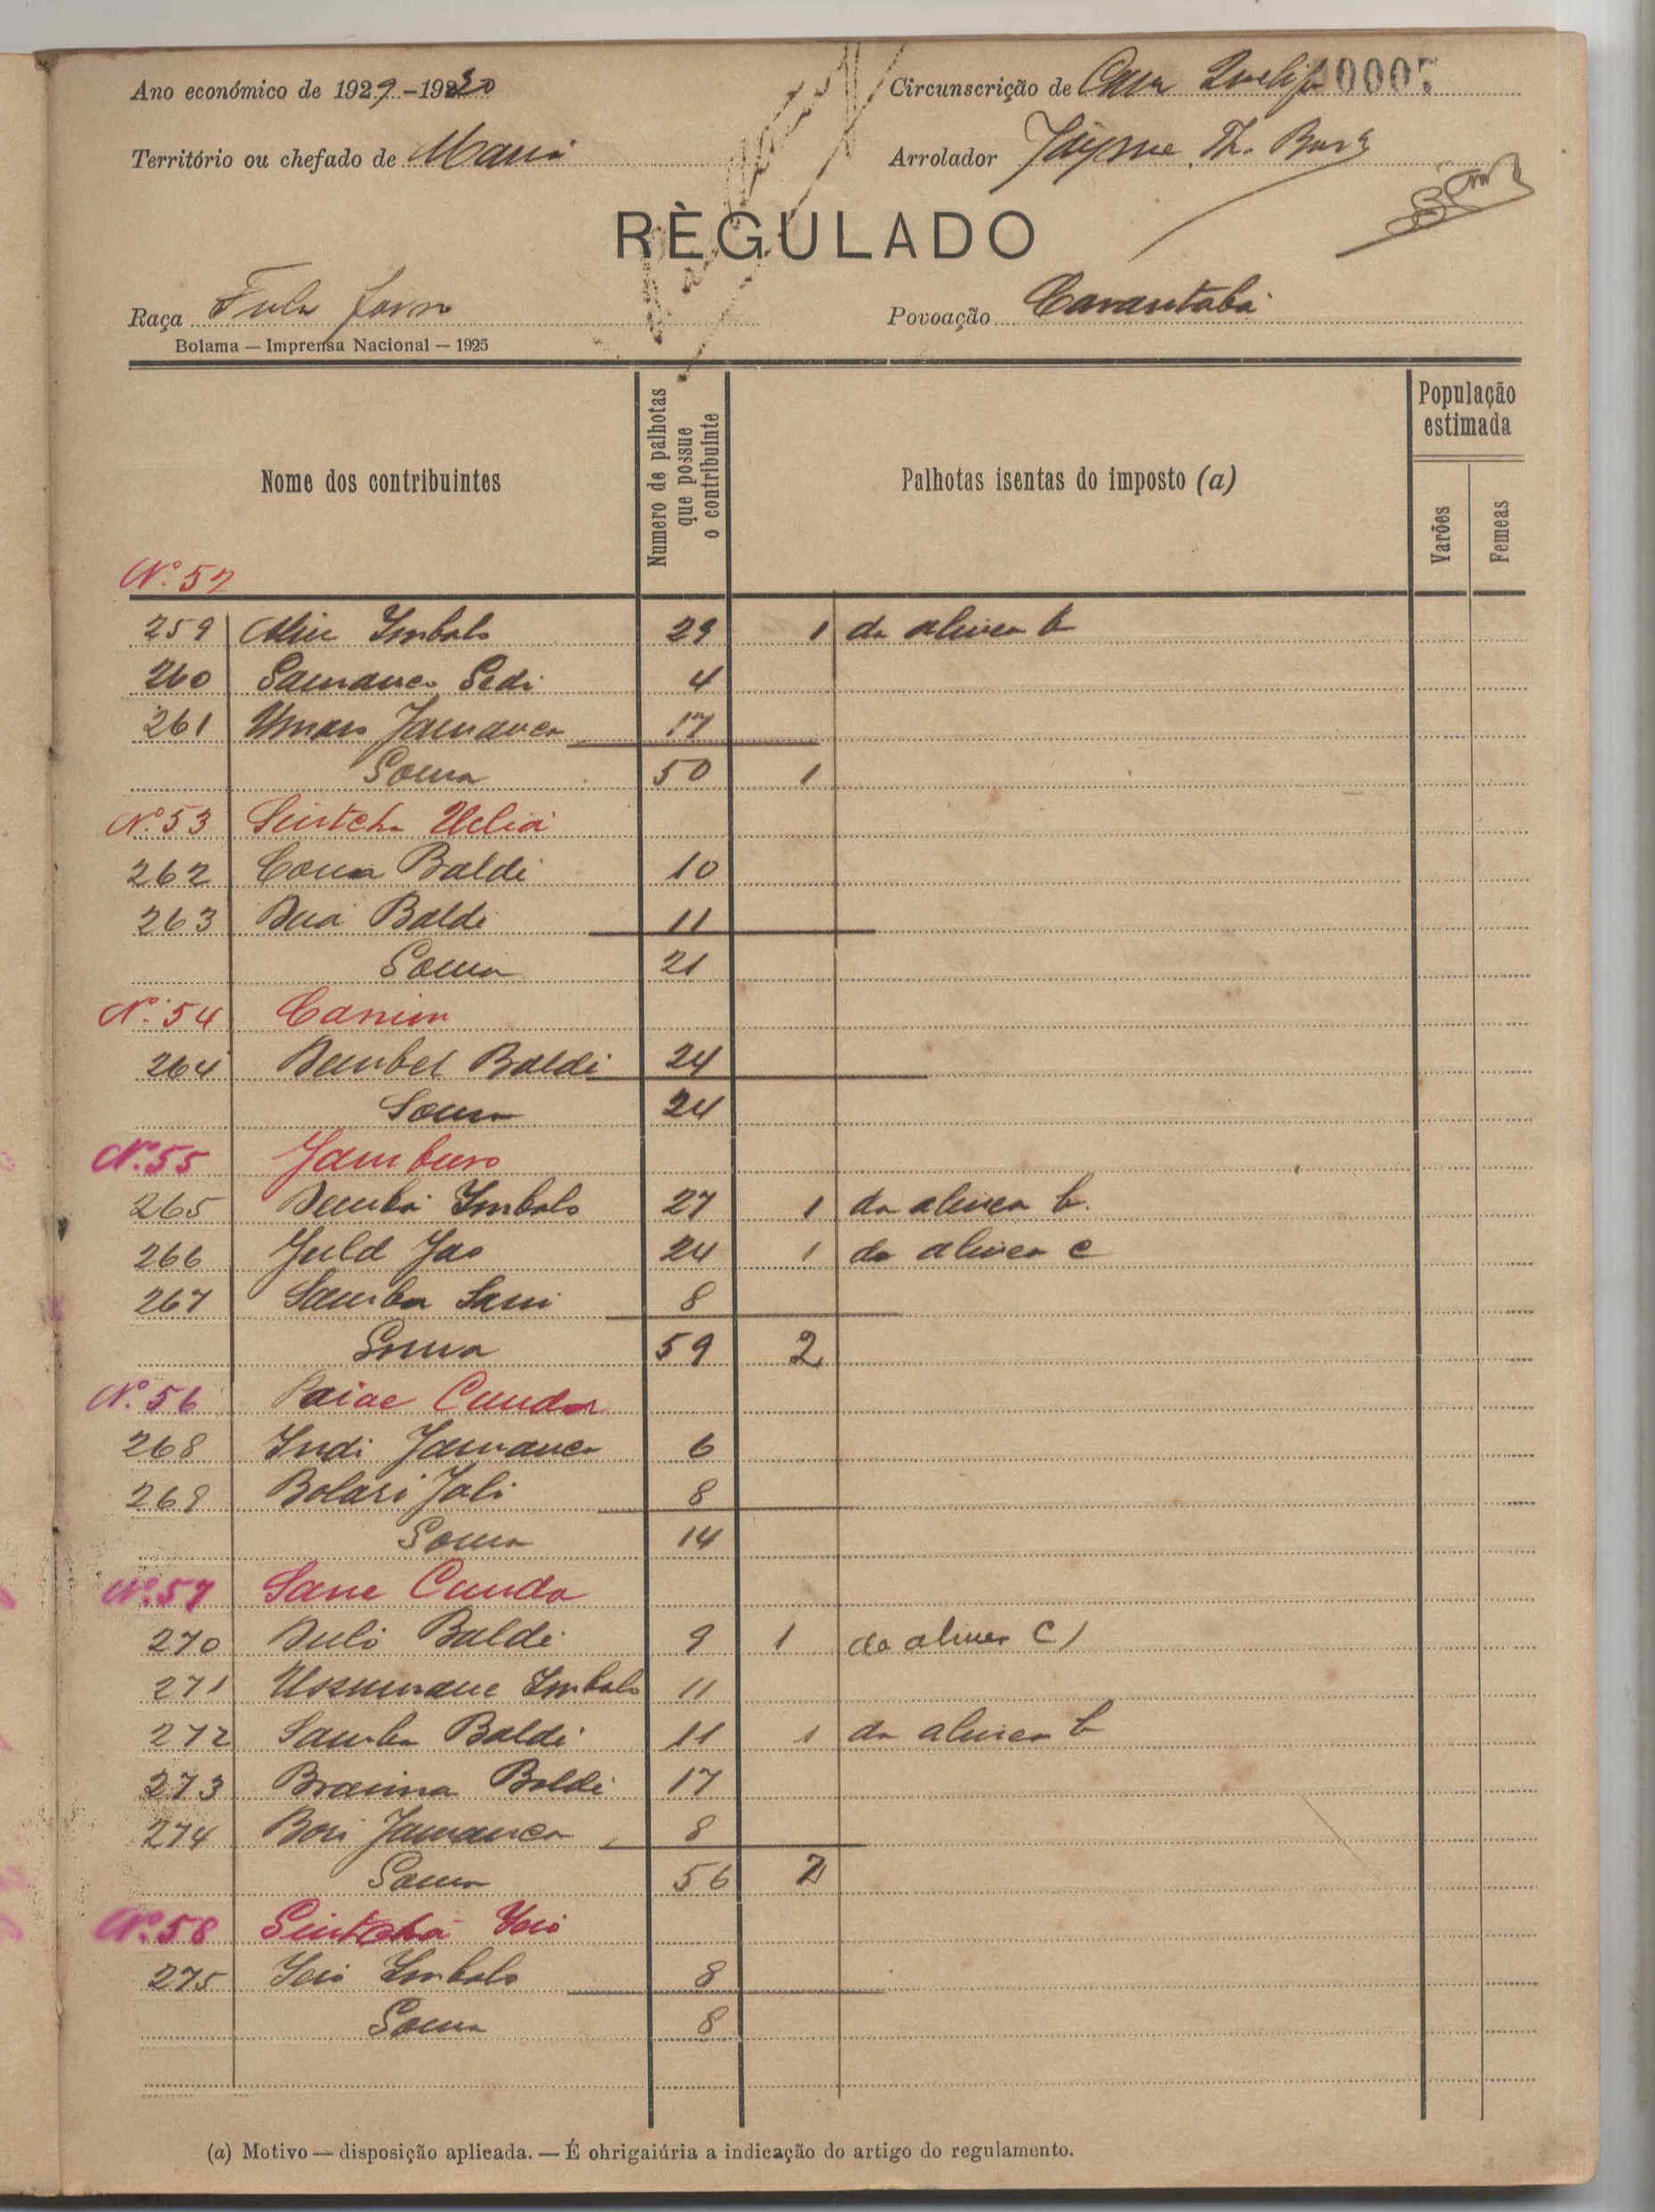 Ano económico de 1929-1930
Circunscrição de 0007
Território ou chefado de Maná
Arrolador Jayme Th.
RÈGULADO
Raça Fula forro
Povoação Carantabá
Bolama — Imprensa Nacional — 1925
Nome dos contribuintes
Numero de palhotas que possue o contribuinte
Palhotas isentas do imposto (a)
População estimada
Varões
Femeas
Nº 52
259 Aliu Imbalo 29 1 da alinea b
260 Samanco Sedi 4
261 Umaro Jamanca 17
Soma 50 1
Nº 53 Sintcha
262 Baldé 10
263 Baldé 11
Soma 21
Nº 54
264 Dembel Baldé 24
Soma 24
Nº 55
265 Demba Imbalo 27 1 da alinea b.
266 Juld Jao 24 1 da alinea c
267 Samba Sani 8
Soma 59 2
Nº 56 Cunda
268 Indi Jamanca 6
269 Bolari Jali 8
Soma 14
Nº 57 Sane Cunda
270 Duló Baldé 9 1 da alinea c)
271 Ussumane Imbalo 11
272 Samba Baldé 11 1 da alinea b
273 Braima Baldé 17
274 Bori Jamanca 8
Soma 56 2
Nº 58 Sintchã Ioió
275 Ioió Imbalo 8
Soma 8
(a) Motivo — disposição aplicada. — É ohrigaiúria a indicação do artigo do regulamento.